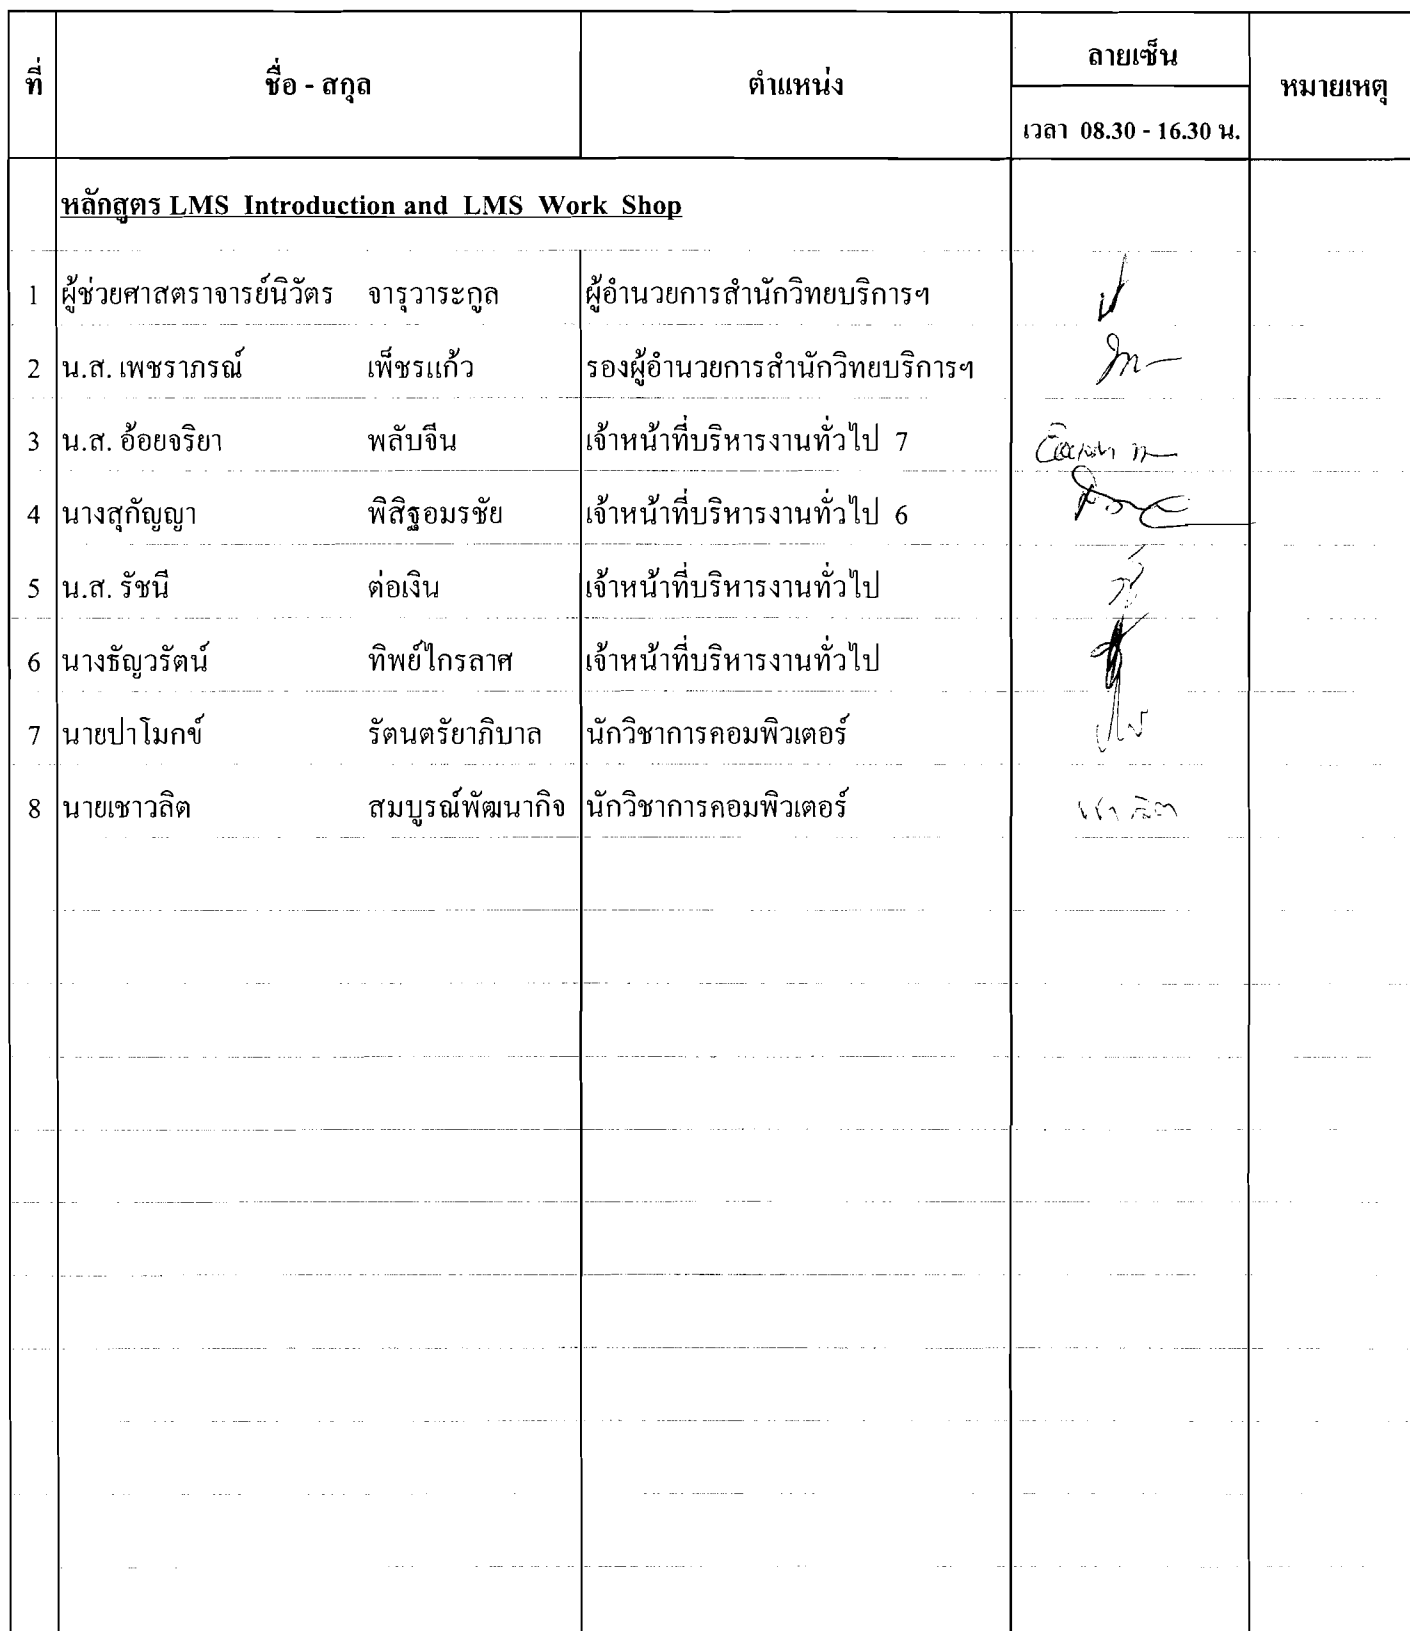 ที่ ชื่อ - สกุล ตำแหน่ง ลายเซ็น หมายเหตุ
เวลา 08.30 - 16.30 น.
หลักสูตร LMS Introduction and LMS Work Shop
1 ผู้ช่วยศาสตราจารย์นิวัตร จารุวาระกูล ผู้อำนวยการสำนักวิทยบริการฯ
2 น.ส. เพชราภรณ์ เพ็ชรแก้ว รองผู้อำนวยการสำนักวิทยบริการฯ
3 น.ส. อ้อยจริยา พลับจีน เจ้าหน้าที่บริหารงานทั่วไป 7
4 นางสุกัญญา พิสิฐอมรชัย เจ้าหน้าที่บริหารงานทั่วไป 6
5 น.ส. รัชนี ต่อเงิน เจ้าหน้าที่บริหารงานทั่วไป
6 นางธัญวรัตน์ ทิพย์ไกรลาศ เจ้าหน้าที่บริหารงานทั่วไป
7 นายปาโมกข์ รัตนตรัยาภิบาล นักวิชาการคอมพิวเตอร์
8 นายเชาวลิต สมบูรณ์พัฒนากิจ นักวิชาการคอมพิวเตอร์